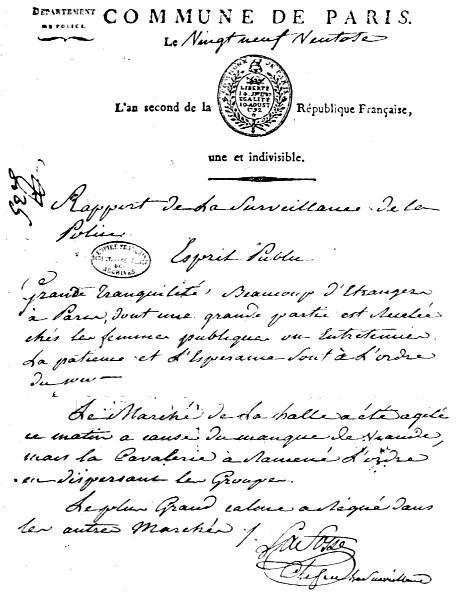 DÉPARTEMENT
DE POLICE.
COMMUNE DE PARIS.
Le Vingt neuf Ventose
COMMUNE DE PARIS
LIBERTÉ
EGALITE
10 AOUST
L'an second de la République Française,
une et indivisible.
Rapport de La Surveillance de la
Police.
Esprit Public
ARCHIVES
Grande tranquilité, Beaucoup d'Etrangers
à Paris, dont une grande partie est
chés les femmes publiques ou Entretenues.
La patience et L'Esperance Sont à L'ordre
du jour
Le Marché de La halle a été agité
ce matin a cause du manque de Viande,
mais la Cavalerie à Ramené L'ordre
en dispersant les Groupes.
Le plus Grand calme a Régné dans
les autres Marchés